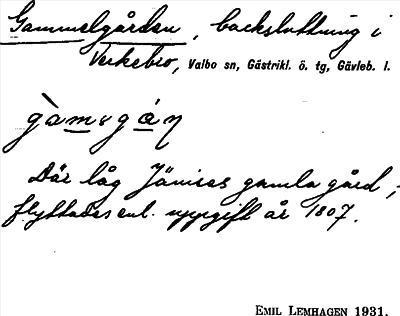 Gammelgården, backsluttning i
Verkebro, Valbo sn, Gästrikl. ö. tg, Gävleb. l.
Där låg Jänsas gamla gård,
flyttades enl. uppgift år 1807.
EMIL LEMHAGEN 1931.